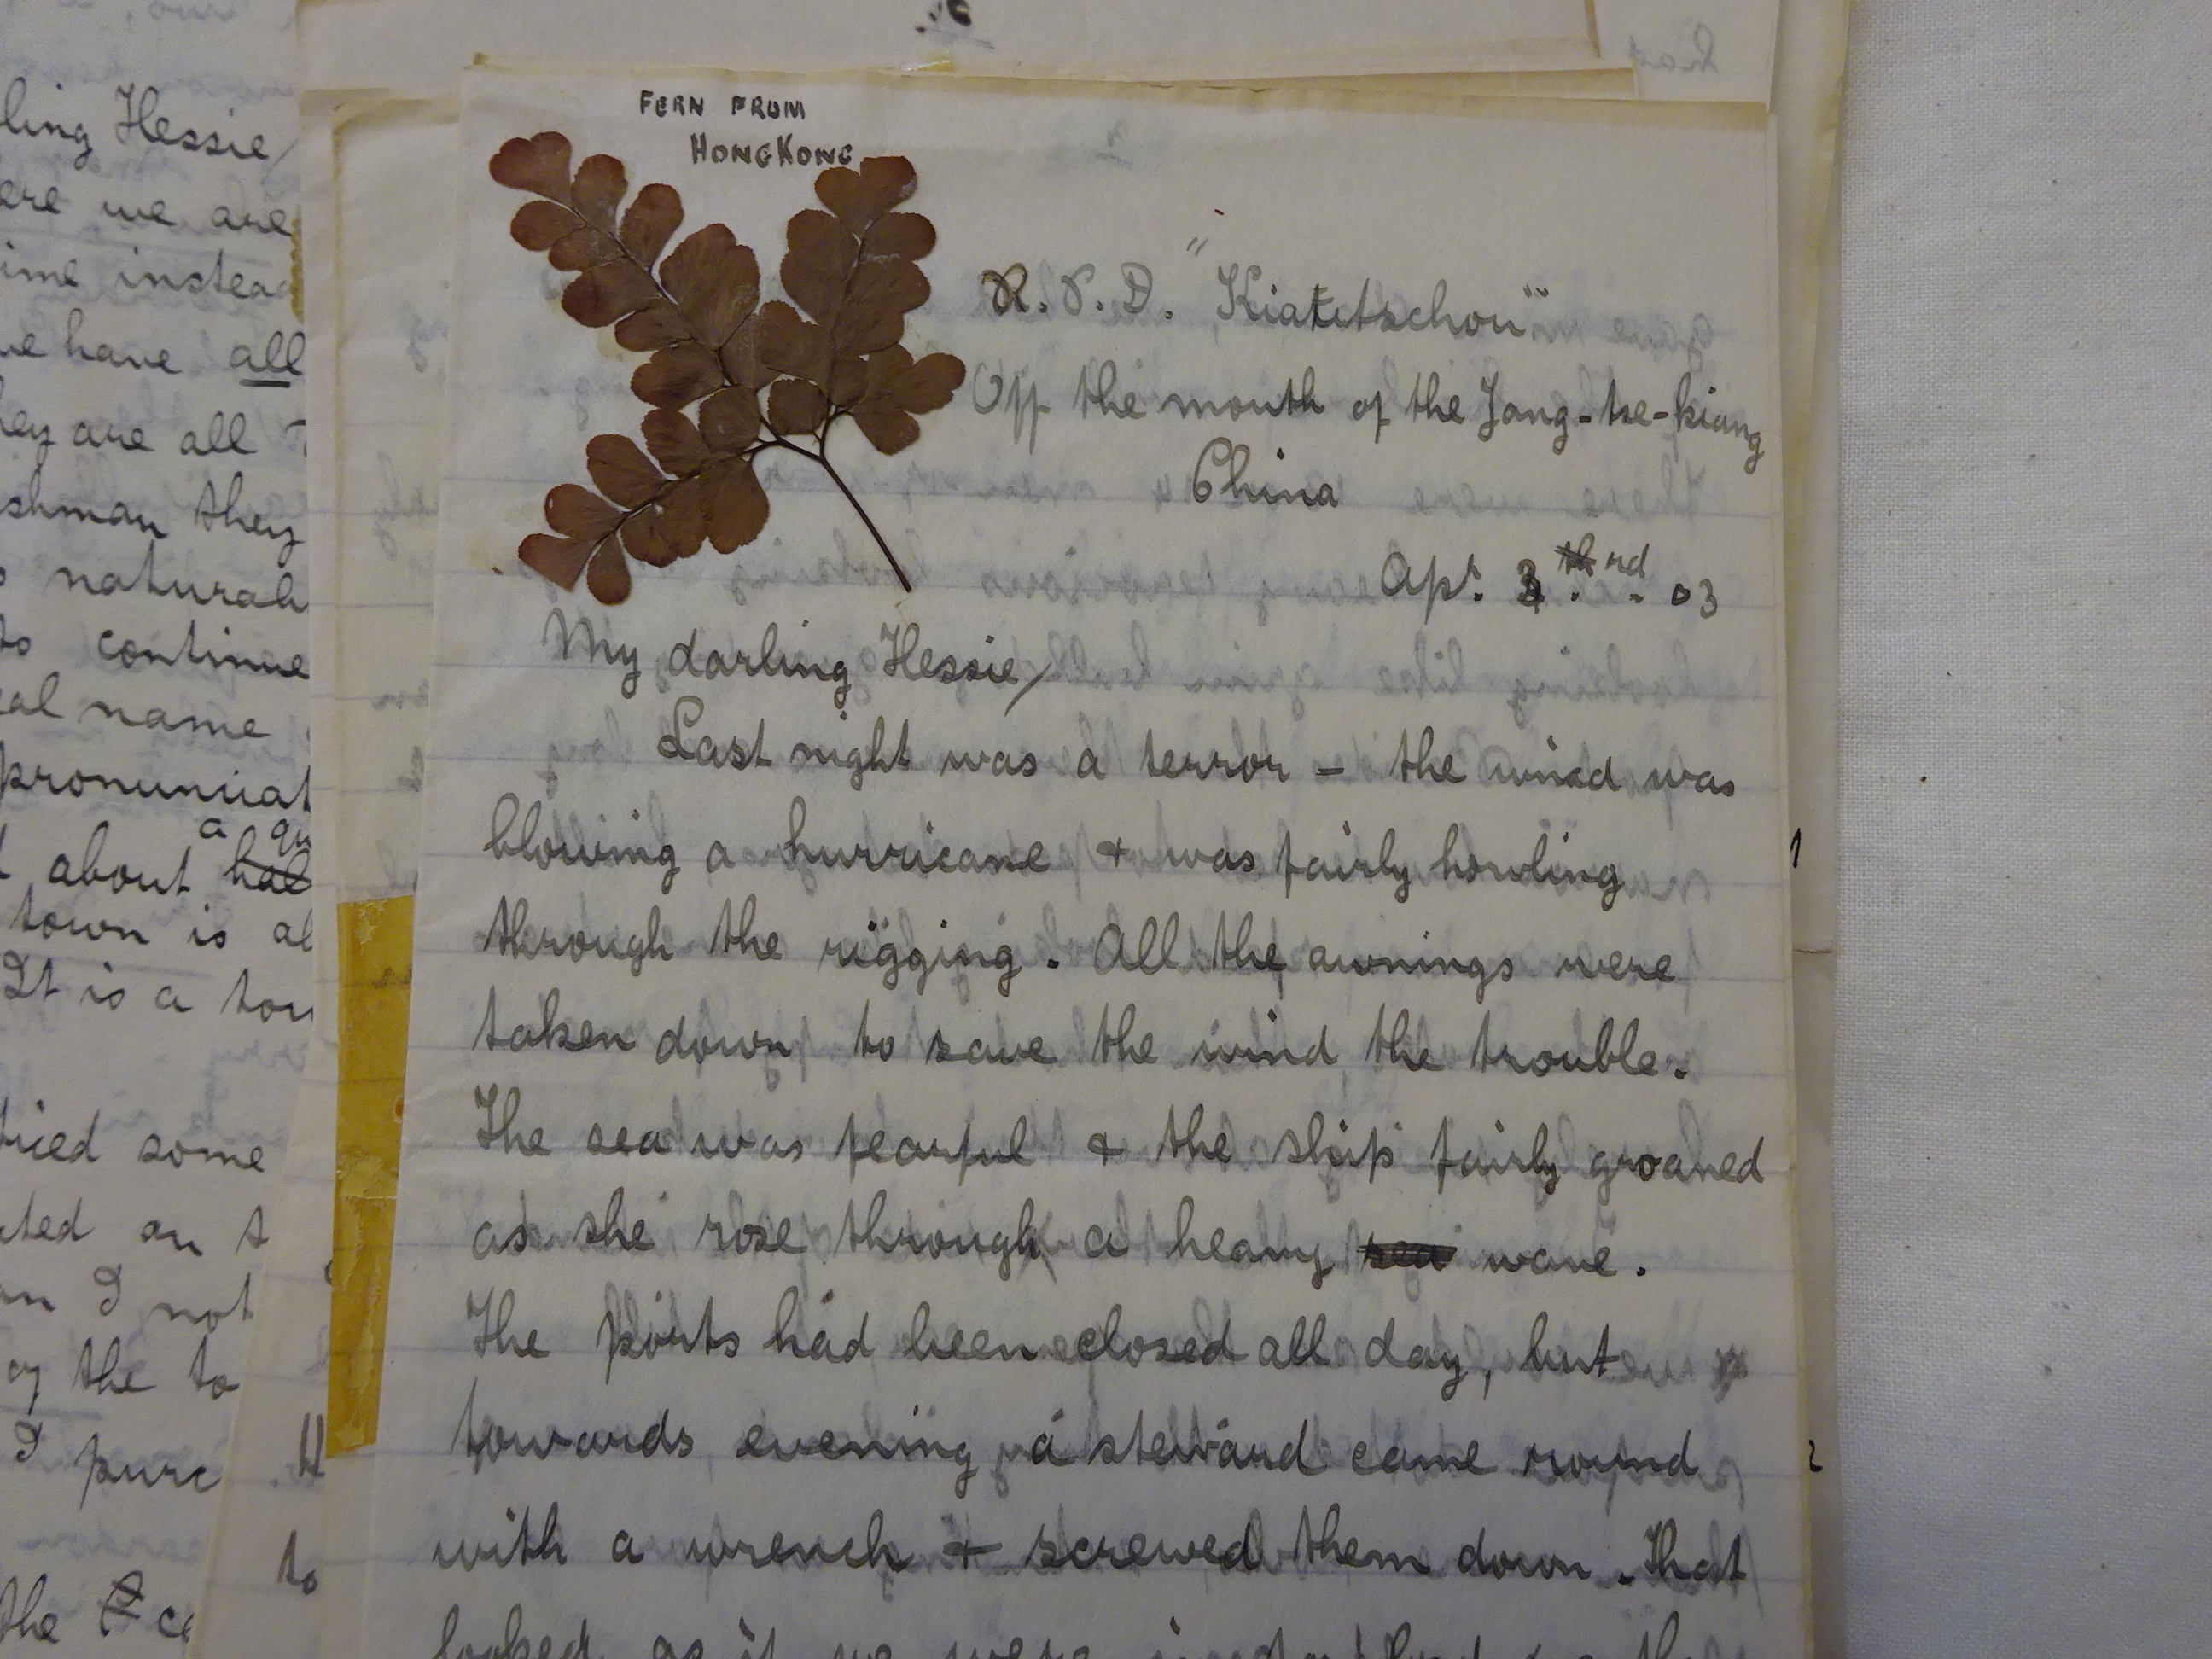 FERN FROM
HONGKONG
R.P.D. "Kiautschou"
Off the mouth of the Yang-tse-kiang
China
Apr. 3 th rd. 03
My darling Hessie/
Last night was a terror - the wind was
blowing a hurricane & was fairly howling
through the rigging. All the awnings were
taken down to save the wind the trouble.
The sea was fearful & the ship fairly groaned
as she rose through a heavy sea wave.
The ports had been closed all day, but
towards evening a steward came round
with a wrench & screwed them down. That
looked as if we were
ling Hessie/
ere we are
ime instead
we have all
hey are all
shman they
naturali
to continue
al name
pronunciat
a qu
about hal
town is al
It is a tow
ticed some
ted on t
I not
of the to
I purc
to
the